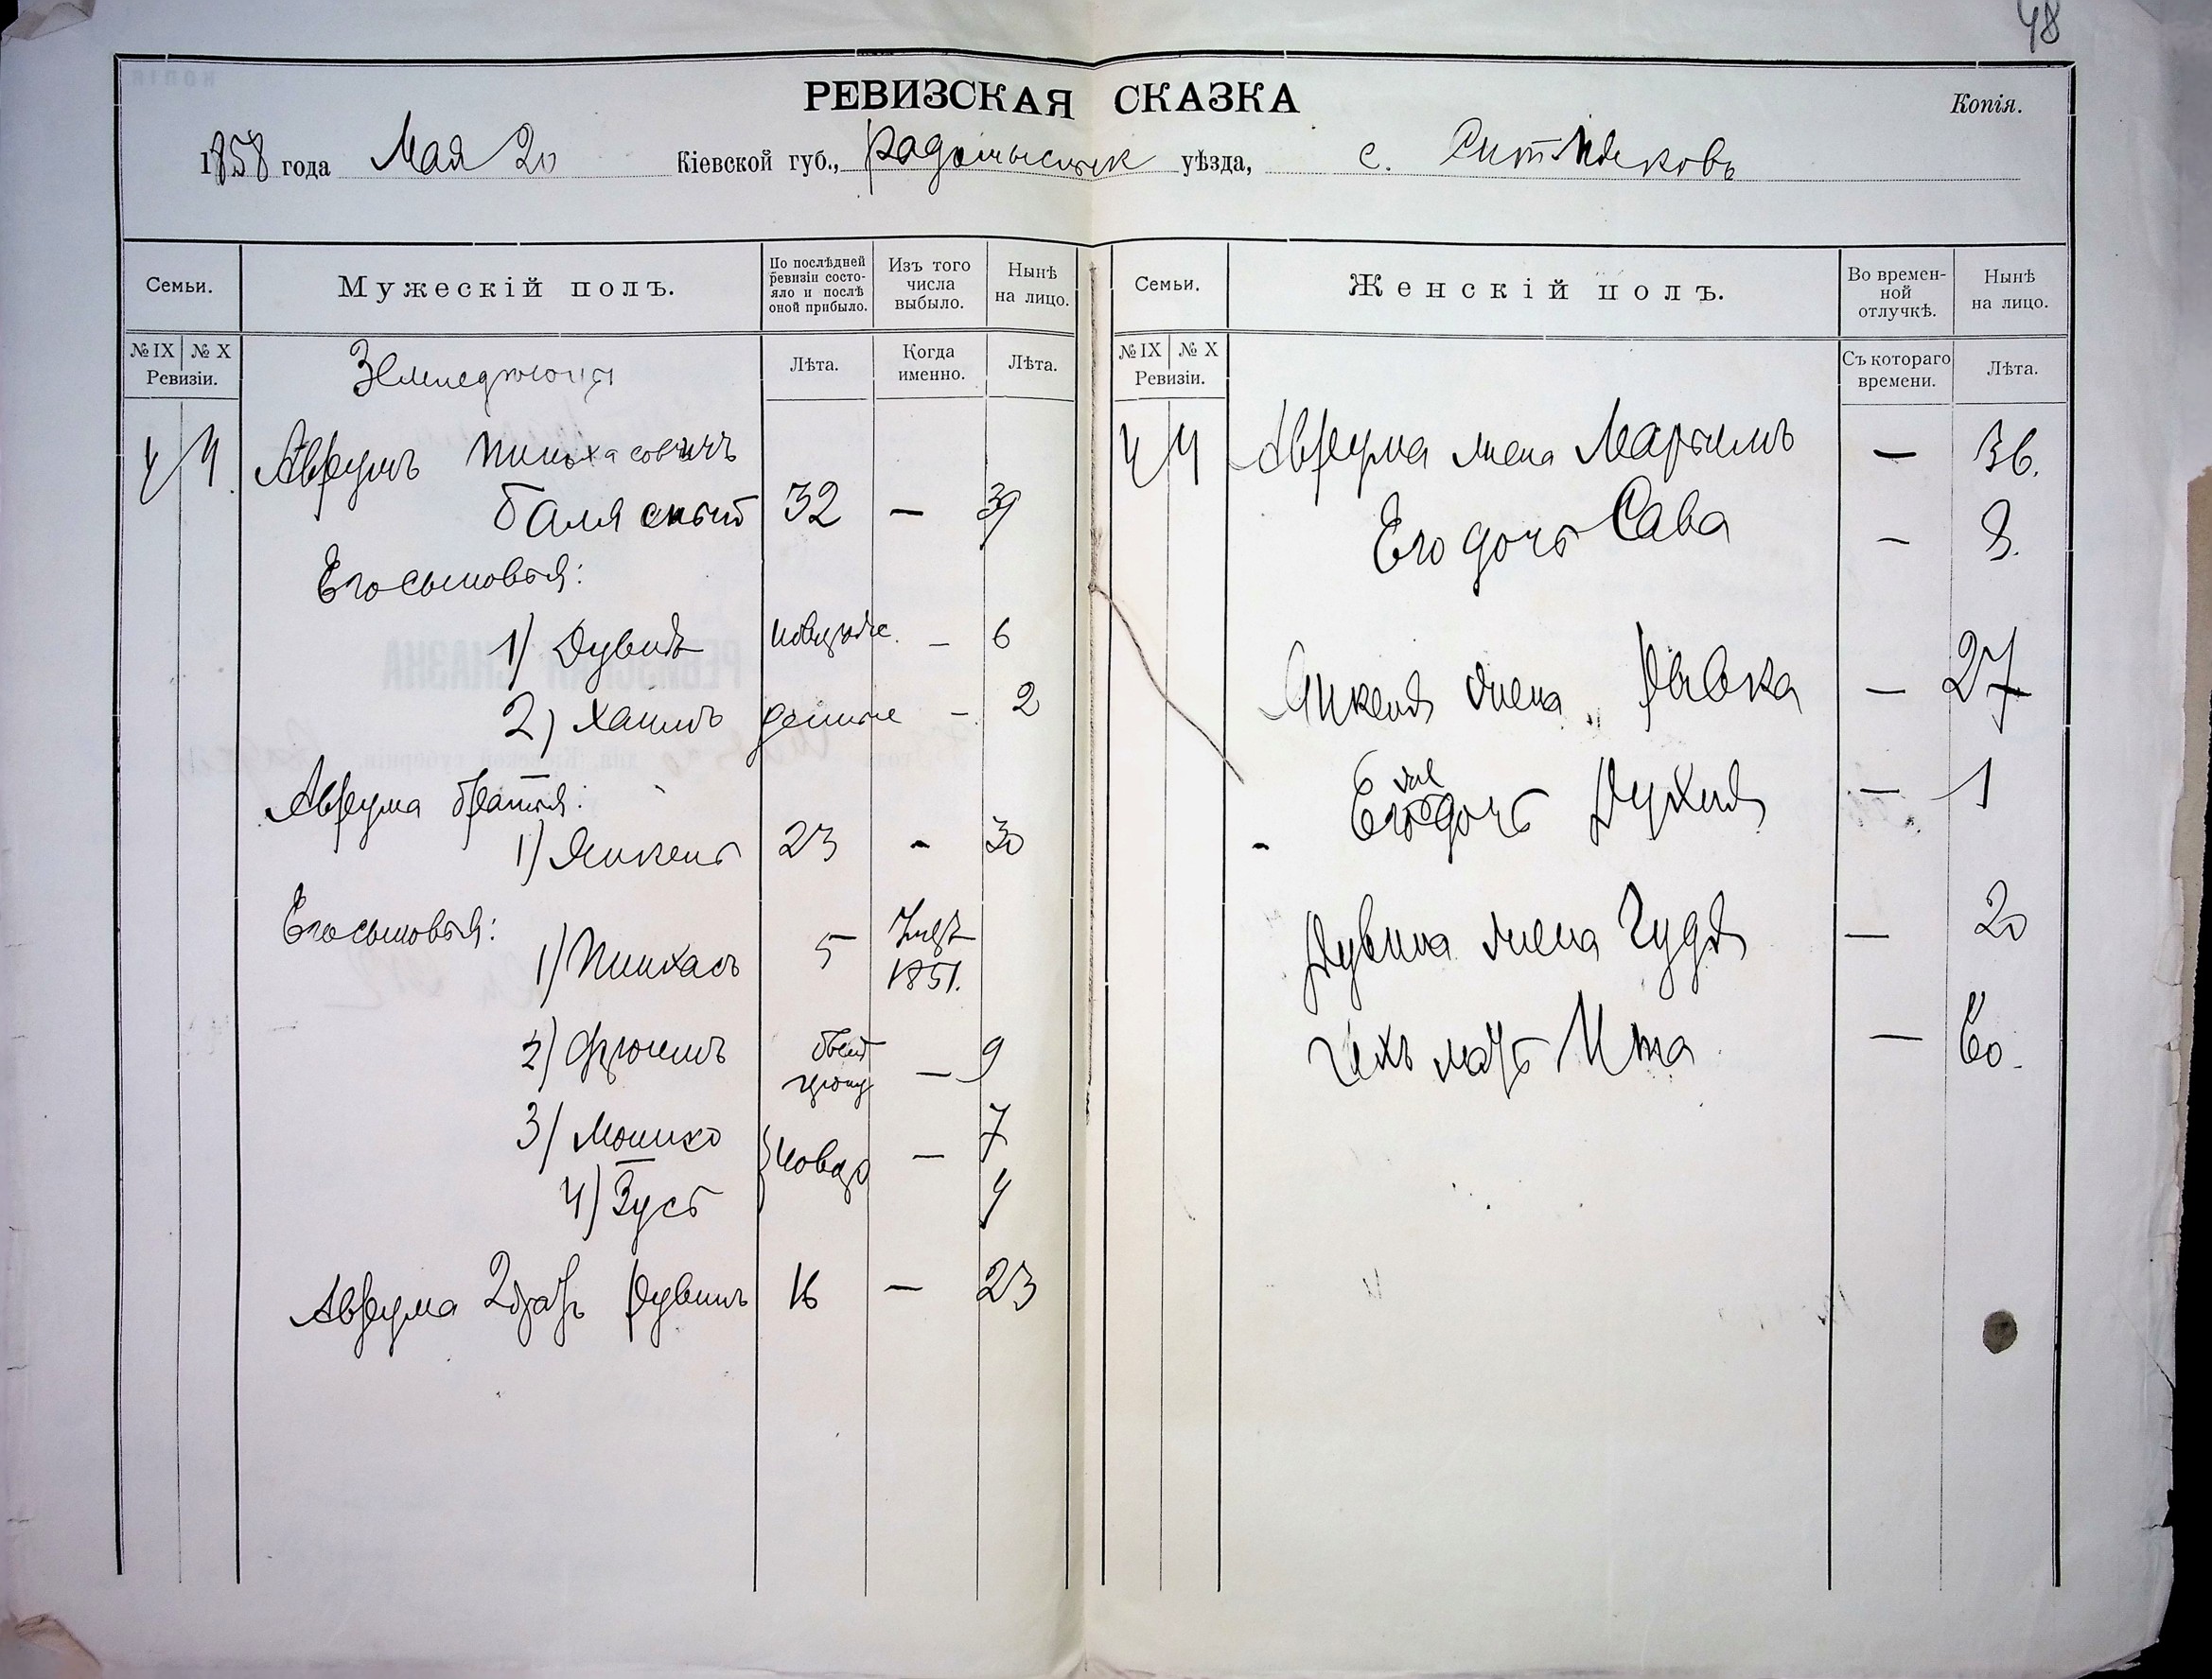 48
РЕВИЗСКАЯ СКАЗКА
Копія.
1858 года Мая 20 Кіевской губ., Радомысльск уѣзда, с.
Семьи.
Мужескій полъ.
По послѣдней ревизіи состо-
яло и послѣ оной прибыло.
Изъ того числа выбыло.
Нынѣ на лицо.
Семьи.
Женскій полъ.
Во времен-
ной отлучкѣ.
Нынѣ на лицо.
№ IX № X
Ревизіи.
Лѣта.
Когда именно.
Лѣта.
№ IX № X
Ревизіи.
Съ котораго времени.
Лѣта.
4 4 Аврумъ Пинхасовичъ
Балясный 32 — 39
Его сыновья:
1) Дувидъ — 6
2) Хаимъ — 2
Аврума братья:
1) Янкель 23 - 30
Его сыновья:
1) Пинхасъ 5 1851.
2) Фроимъ — 9
3) Мошко 7
4) Зусь — 4
Аврума 2 братъ Дувидъ 16 — 23
4 4 Аврума жена Марьямъ — 36.
Его дочь Сава — 8.
Янкеля жена Ривка — 27
Его дочь — 1
Дувида жена — 20
Ихъ мать Ита — 60.